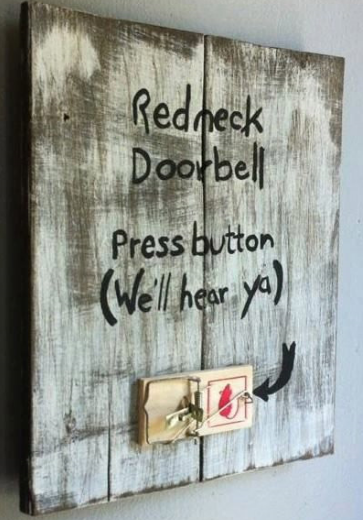 Redneck
Doorbell
Press button
(We'll hear ya)